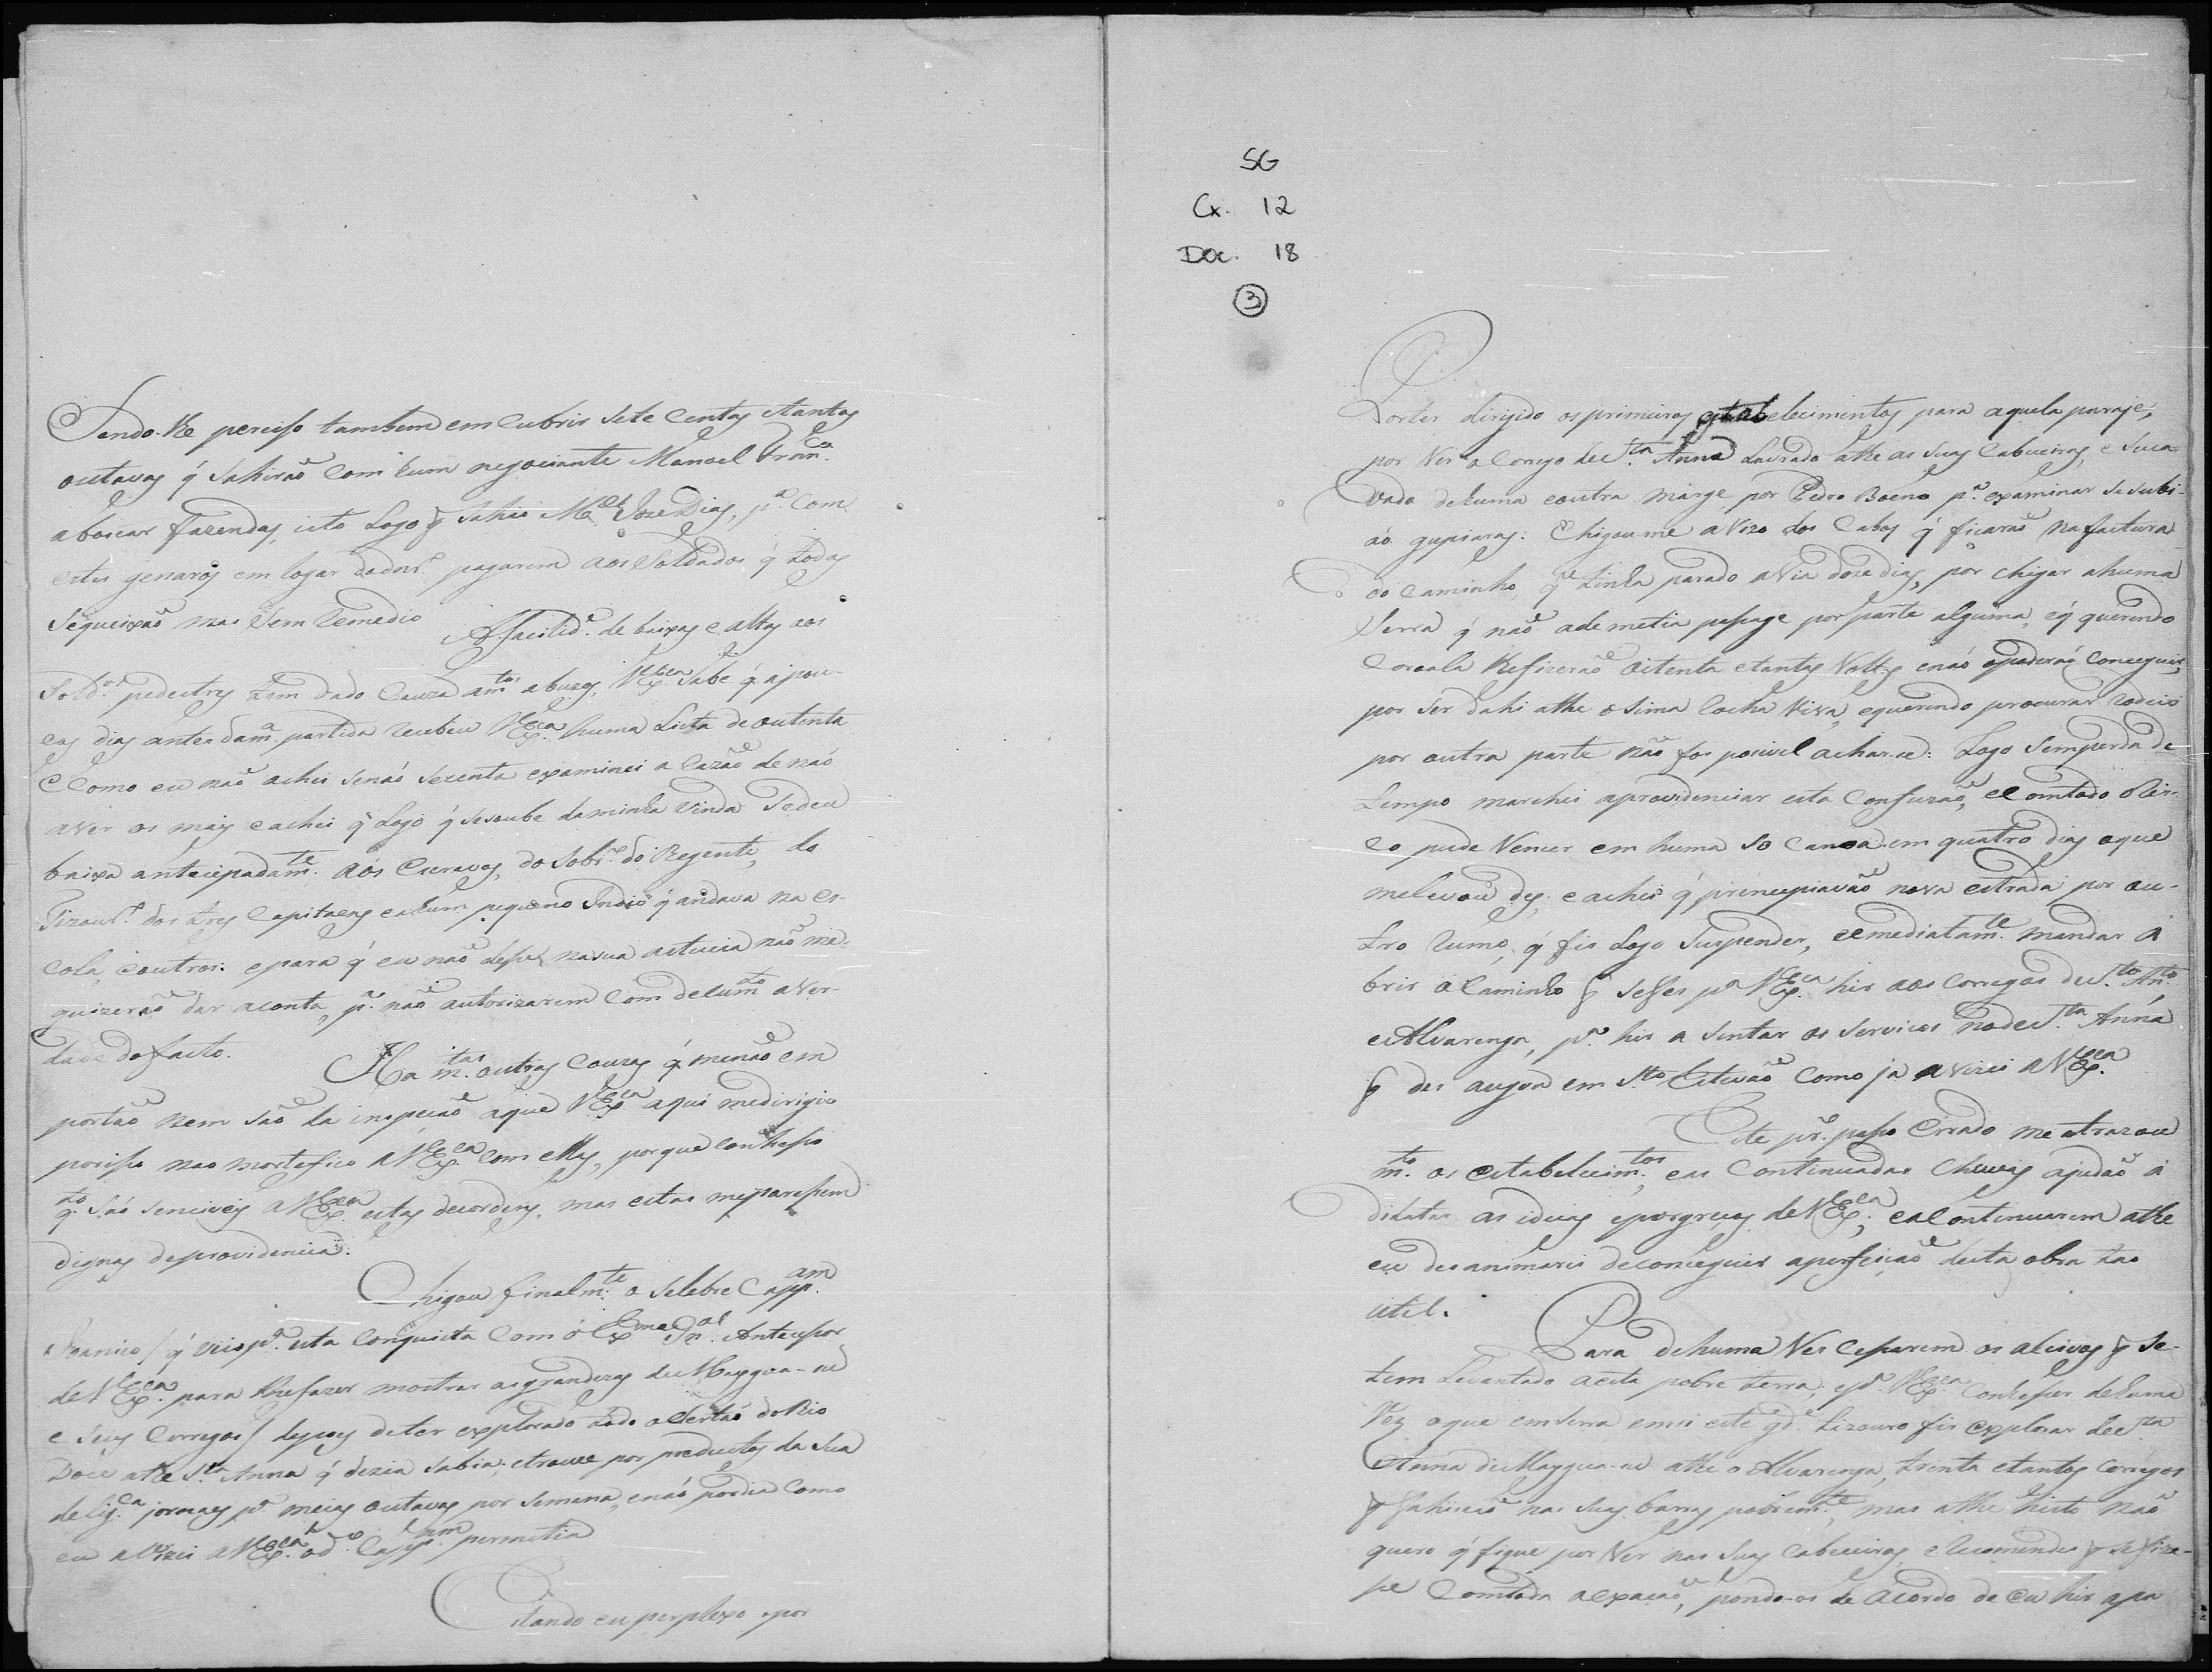 Sendo-lhe perciso tambem em cubrir sete centas etantas
outavas q̃ sahiraõ com hum negociante Manoel Fran.co
abuscar fazendas, isto Logo q̃ sahio M.el Joze Dias, p.a com
estes genaros em logar dodnr.o pagarem aos Soldados q̃ todos
sequeixaõ mas sem Remedio A facilid.e de baixas e altas aos
Sold.os pedestres tem dado Cauza am.tos abuzos, V Ex.ca sabe q̃ apou-
cos dias antes dam.a partida recebeu V Ex.ca huma Lista de outenta
e Como eu naõ achei senaó secenta examinei a Razaõ de naó
aver os mais e achei q̃ Logo q̃ sesoube daminha vinda sedeu
baixa antecipadam.te aós Escravos, do Sobr.o do Regente, do
Tizour.o dos tres Capitaens e ahum pequeno Indio q̃ andava na es-
cola, e outros: epara q̃ eu naõ desse nasua astucia naõ me
quizeraõ dar aconta, p.a naõ autorizarem Com docum.to aver-
dade dofacto. Ha m.tas outras Couzas q̃ menaõ em
portaõ nem saõ da inspeçaõ aque V Ex.ca aqui medirigio
porisso nao mortefico A V Ex.ca Com ellas, porque conheso
q.to saó sensiveis A V Ex.ca estas decordens, mas estas meparesem
dignas deprovidencia.
Chigou finalm.te o Selebre Capp.am
Januario / q̃ veio p.a esta Conquista Com ó Ex.mo Gn.al Antecesor
de V Ex.ca para lhefazer mostrar asgrandezas de Mayguasu
e seus Corregos / depois deter explorado todo oSertaó do Rio
Doce athe S.ta Anna q̃ dizia sabia, etrouce por productos da sua
delig.ca jornaes p.a meias outavas por semana, enaó pordia Como
eu avizei aV Ex.ca q̃ od.o Capp.am permetia
Estando eu perplexo, epor
SG
Cx. 12
Doc. 18
3
Porter dirigido osprimeiros estabelecimentos para aquela paraje,
por Ver o Corrego de S.ta Anna Lavrado athe as suas Cabiceiras, e Suca-
vada dehuma eoutra marge por Pedro Boeno p.a examinar sesubi-
aó gupiaras: Chigoume avizo dos Cabos q̃ ficaraõ nafactura
do Caminho, q̃ tinha parado avia doze dias, por chigar ahuma
Serra q̃ naõ ademetia passage por parte alguma, eq̃ querendo
Cortala lhefizeraõ oitenta etantas Voltas enaó apoderaõ Conseguir,
por ser dahi athe osima Rocha viva, equerendo procurar rodeio
por outra parte naõ foi posivel achar-se: Logo semperda de
tempo marchei aprovidenciar esta Confuzaõ, e Comtodo oRis-
co pude Vencer em huma so Canoa em quatro dias oque
melevou des, e achei q̃ prencepiavaõ nova estrada por ou-
tro Rumo, q̃ fis Logo Suspender, e emediatam.te mandar a
brir oCaminho q̃ sefes p.a V Ex.ca hir aos Corregos de S.to An.to
e Alvarenga, p.a hir a sentar os Servicos node S.ta Anna
q̃ des augoa em S.to Estevaõ Como ja avizei A V Ex.ca
Este pr.o passo Errado me atrazou
m.to os estabelecim.tos, eas Continuadas chuvas ajudaõ a
dilatar as ideias eporgreços de V Ex.ca; eaContinuarem athe
eu desanimarei deconseguir aperfeiçaõ desta obra tao
util.
Para dehuma Ves Cesarem os aleives q̃ se-
tem Levantado aesta pobre terra, ep.a V Ex.ca Conheser dehuma
Vez oque emserra emsi este gd.e tizouro fis explorar de S.ta
Anna de Mayguasu athe o Alvarenga, trinta etantos Corregos
q̃ fahiscaõ nas suas barras pobrem.te, mas athe histo naõ
quero q̃ fique por Ver nas suas Cabiceiras, e Recomendei q̃ sefize-
se Comtoda aexaçaõ, pondo-os de acordo de eu hir apa